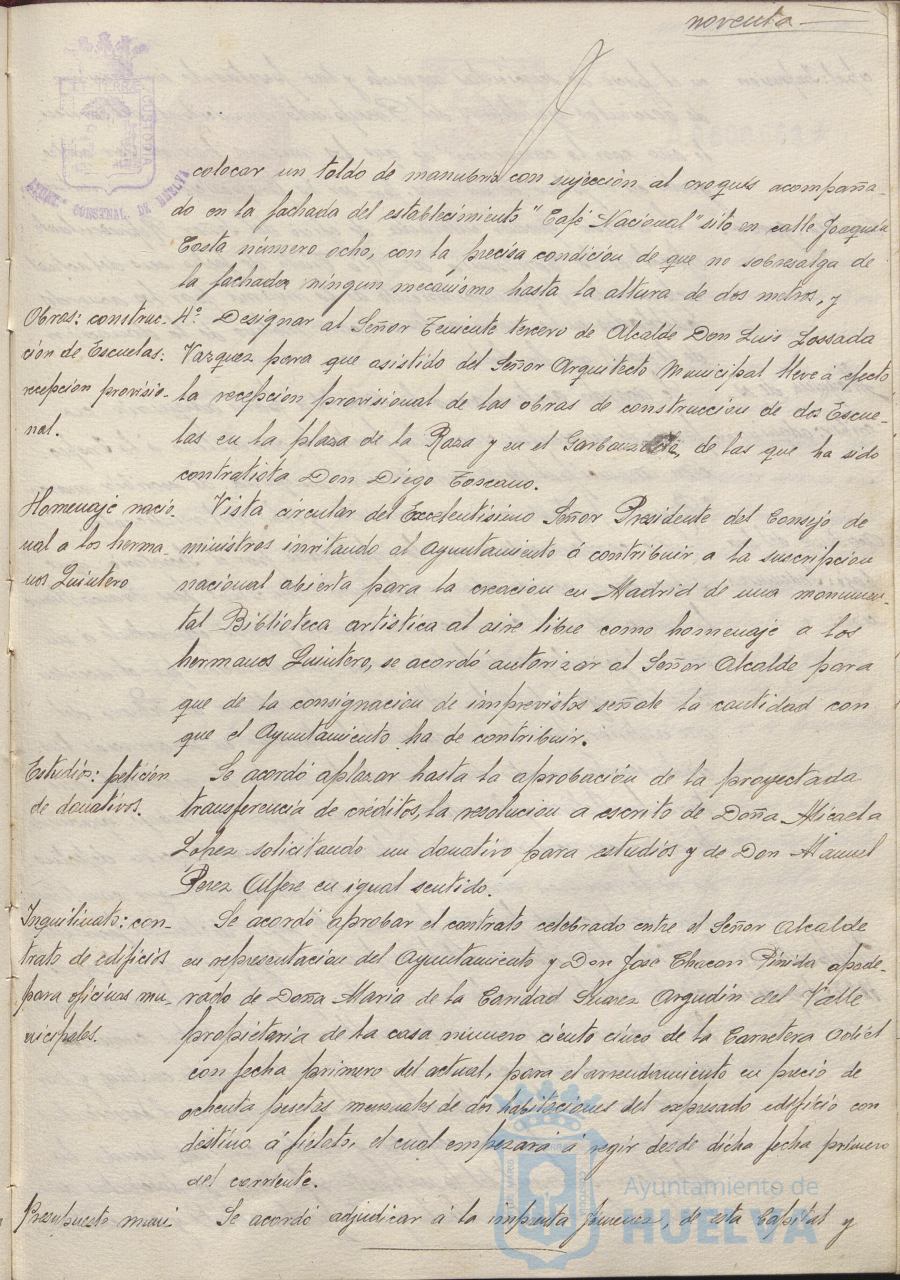 noventa
AYUNT.º CONSTNAL. DE HUELVA
colocar un toldo de manubrio con sujección al croquis acompaña-
do en la fachada del establecimiento "Café Nacional" sito en calle Joaquin
Costa número ocho, con la precisa condición de que no sobresalga de
la fachada ningun mecanismo hasta la altura de dos metros, y
Obras: construc-
ción de Escuelas:
recepcion provisio-
nal.
4º Designar al Señor Teniente tercero de Alcalde Don Luis Lossada
Vazquez para que asistido del Señor Arquitecto Municipal lleve á efecto
la recepción provisional de las obras de construccion de dos Escue-
las en la plaza de la Raza y en el de las que ha sido
contratista Don Diego Toscano.
Homenaje nacio-
nal a los herma-
nos Quintero
Vista circular del Excelentisimo Señor Presidente del Consejo de
ministros invitando al Ayuntamiento á contribuir a la suscripcion
nacional abierta para la creacion en Madrid de una monumen-
tal Biblioteca artistica al aire libre como homenaje a los
hermanos Quintero, se acordó autorizar al Señor Alcalde para
que de la consignacion de imprevistos señale la cantidad con
que el Ayuntamiento ha de contribuir.
Estudios: petición
de donativos.
Se acordó aplazar hasta la aprobación de la proyectada
transferencia de créditos, la resolucion a escrito de Doña Micaela
Lopez solicitando un donativo para estudios y de Don Manuel
Perez en igual sentido.
Inquilinato: con-
trato de edificios
para oficinas mu-
nicipales.
Se acordó aprobar el contrato celebrado entre el Señor Alcalde
en representacion del Ayuntamiento y Don José Chacon apode-
rado de Doña Maria de la Caridad Suarez Argudin del Valle
propietaria de la casa número ciento cinco de la Carretera Odiel
con fecha primero del actual, para el arrendamiento en precio de
ochenta pesetas mensuales de dos habitaciones del expresado edificio con
destino á fielato, el cual empezará á regir desde dicha fecha primero
del corriente.
Presupuesto muni
Se acordó adjudicar á la imprenta Jimenez, de esta Capital y
Ayuntamiento de
HUELVA